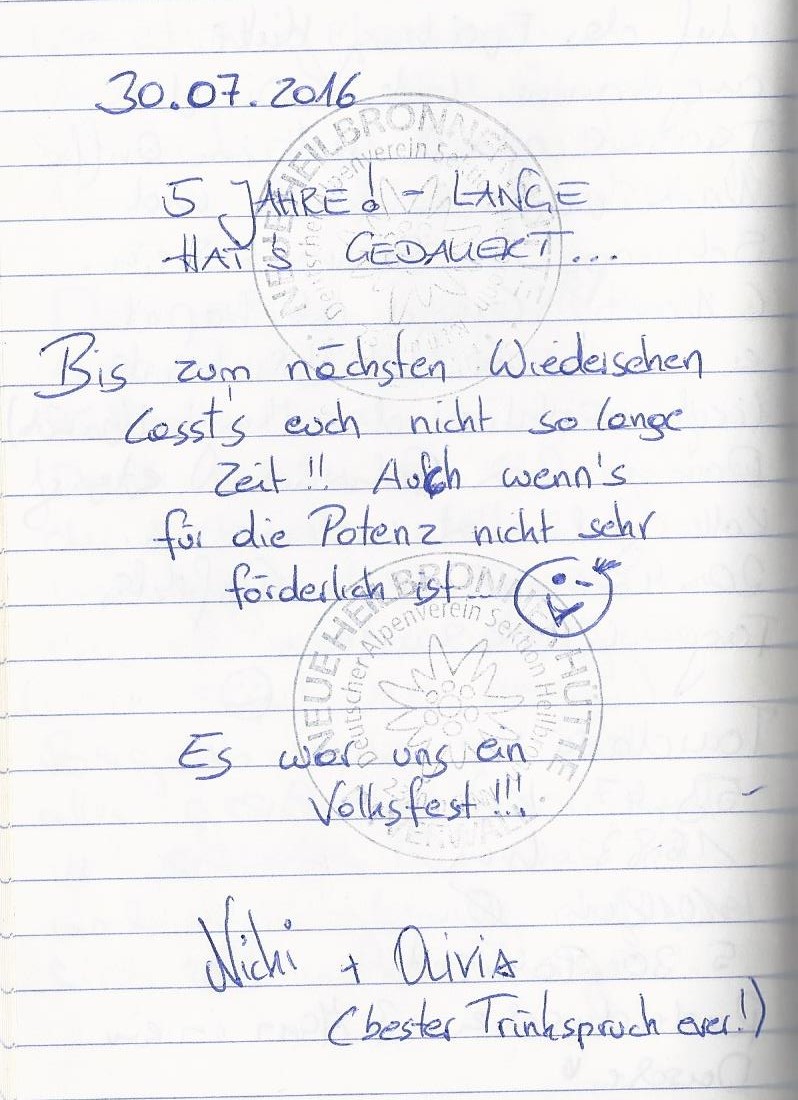 30.07.2016
5 JAHRE! - LANGE
HAT'S GEDAUERT...
Bis zum nächsten Wiedersehen
lasst's euch nicht so lange
Zeit!! Auch wenn's
für die Potenz nicht sehr
förderlich ist...
Es war uns ein
Volksfest!!!
Nichi + Olivia
(bester Trinkspruch ever!)
NEUE HEILBRONNER
Deutscher Alpenverein Sektion
NEUE HEILBRONNER HÜTTE
Deutscher Alpenverein Sektion Heilbronn
VERWALL